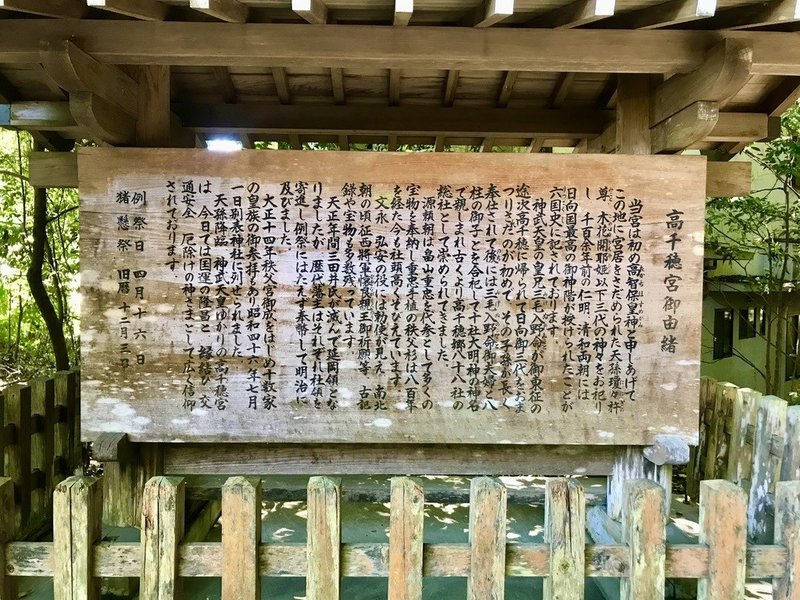 高千穂宮御由緒
当宮は初め高智保皇神と申しあげて
この地に宮居をさだめられた天孫瓊々杵
尊、木花開耶姫以下三代の神々をお祀り
し、千百余年前の仁明、清和両朝には
日向国最高の御神階が授けられたことが
六国史に記されております。
神武天皇の皇兄三毛入野命が御東征の
途次高千穂に帰られて日向御三代をおま
つりさだめたのが初めで、その子孫が長く
奉仕されて後には三毛入野命御夫婦と八
柱の御子とを合祀して十社大明神の神名
で親しまれ古くより高千穂郷八十八社の
総社として崇められてきました。
源頼朝は畠山重忠を代参として多くの
宝物を奉納し重忠手植の秩父杉は八百年
を経た今も社頭高くそびえています。
文永、弘安の役には勅使が見え、南北
朝の頃征西将軍懐良親王御祈願等、古記
録や宝物も多数残っています
天正年間三田井氏が滅んで延岡領とな
りましたが、歴代藩主はそれぞれ社領を
寄進し例祭にはたえず奉幣して明治に
及びました。
大正十四年秩父宮御成をはじめ十数家
の皇族の御参拝もあり昭和四十六年七月
一日別表神社に列せられました
天孫降臨、神武天皇ゆかりの高千穂宮
は、今日では国運の隆昌と、縁結び、交
通安全、厄除けの神さまとして広く信仰
されております。
例祭日 四月十六日
猪懸祭 旧暦 十二月三日